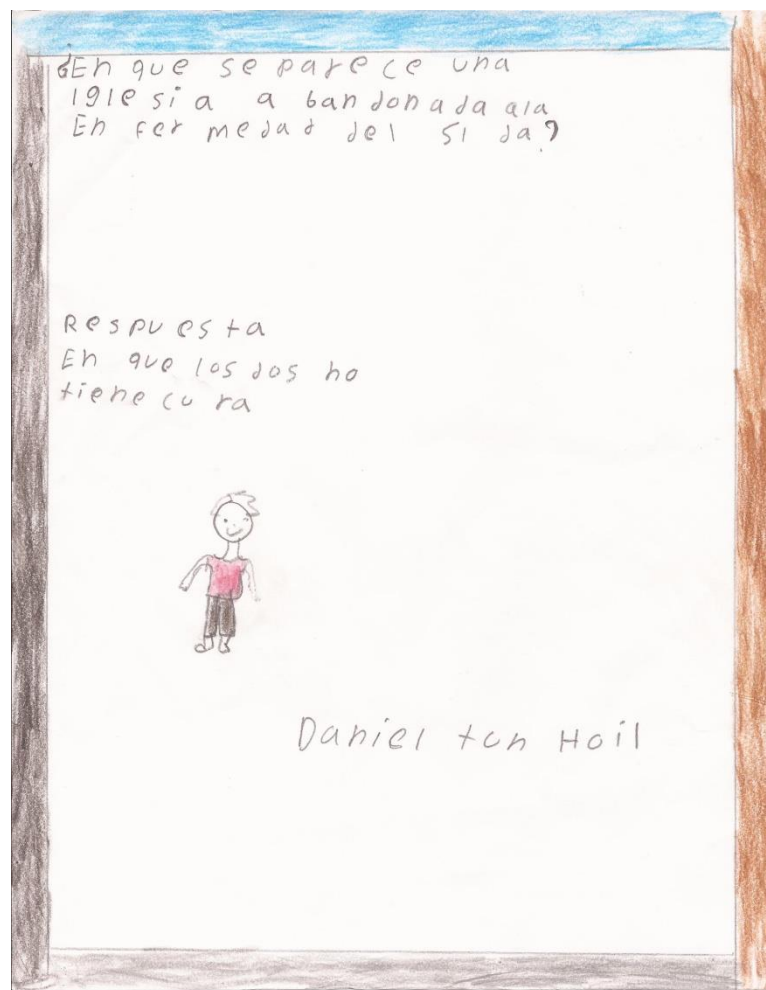 ¿En que se parece una
Iglesia a bandonada ala
En fer medad del Si da?
Respuesta
En que los dos no
tiene cu ra
Daniel tun Hoil